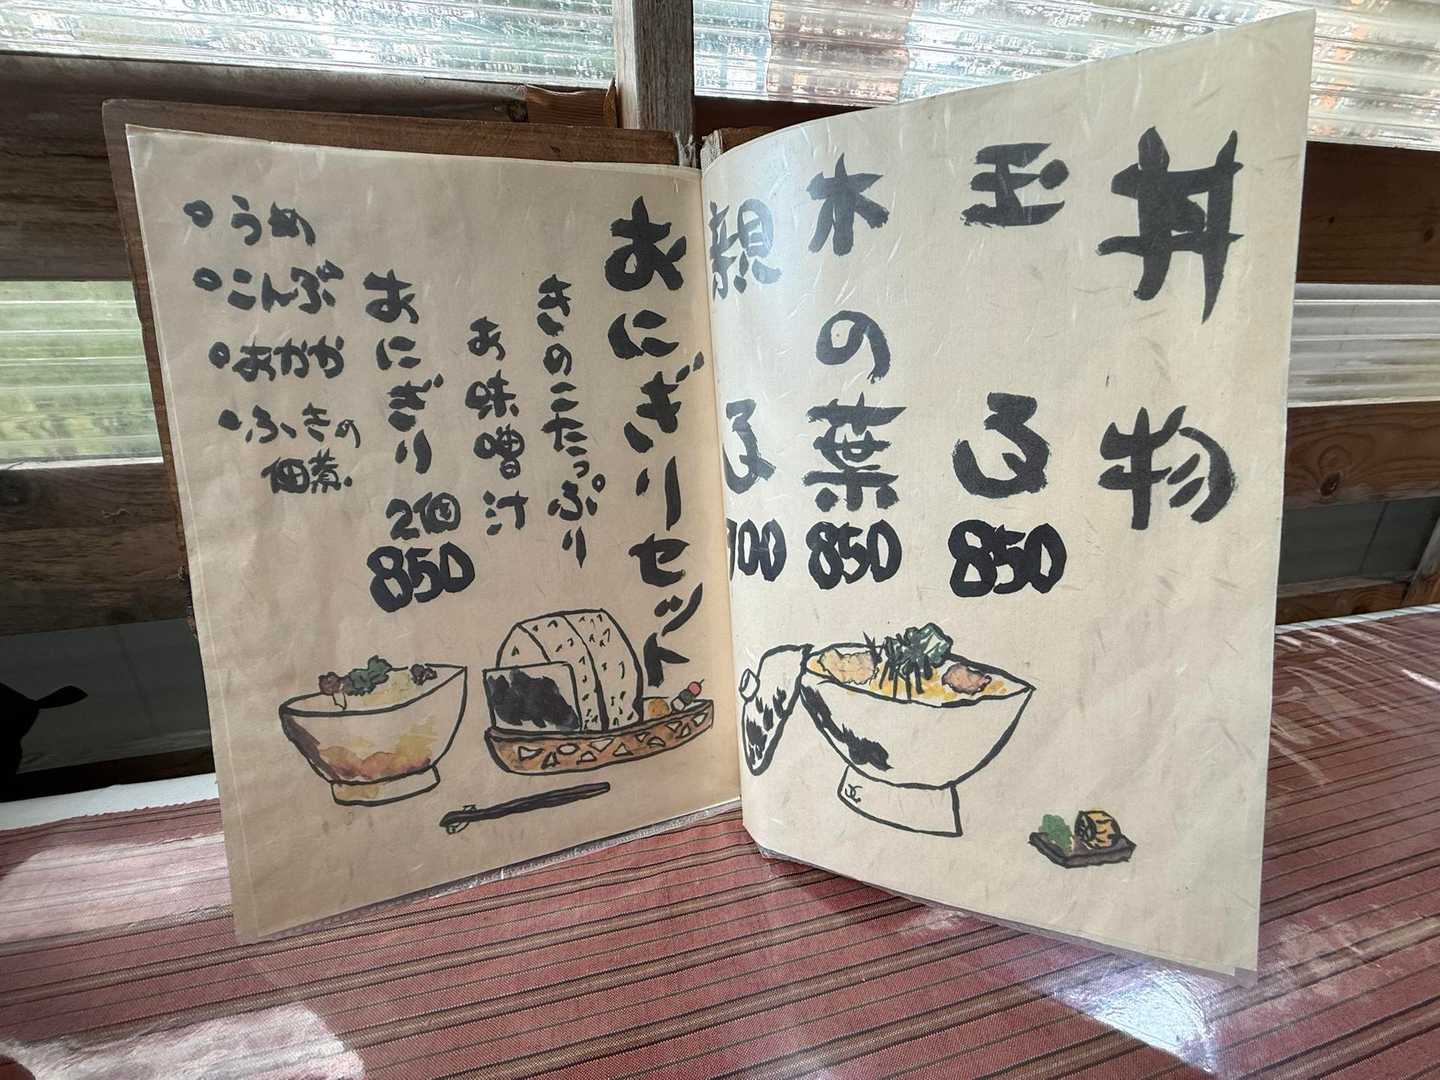 丼物
玉ろ
850
木の葉
850
親ろ
おにぎりセット
きのこたっぷり
お味噌汁
おにぎり2個
850
・うめ
・こんぶ
・おかか
・ふきの
佃煮